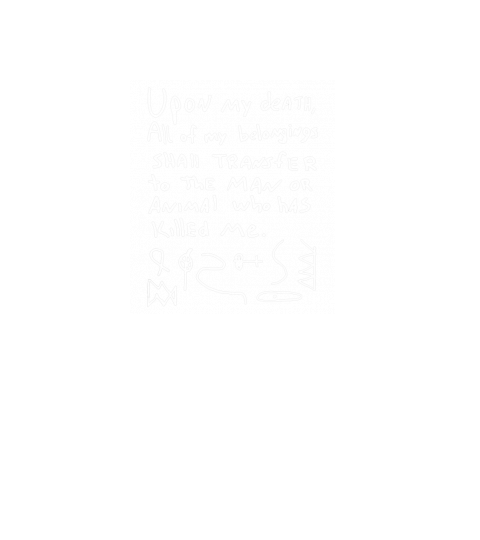 Upon my death,
All of my belongings
shall transfer
to the man or
animal who has
killed me.